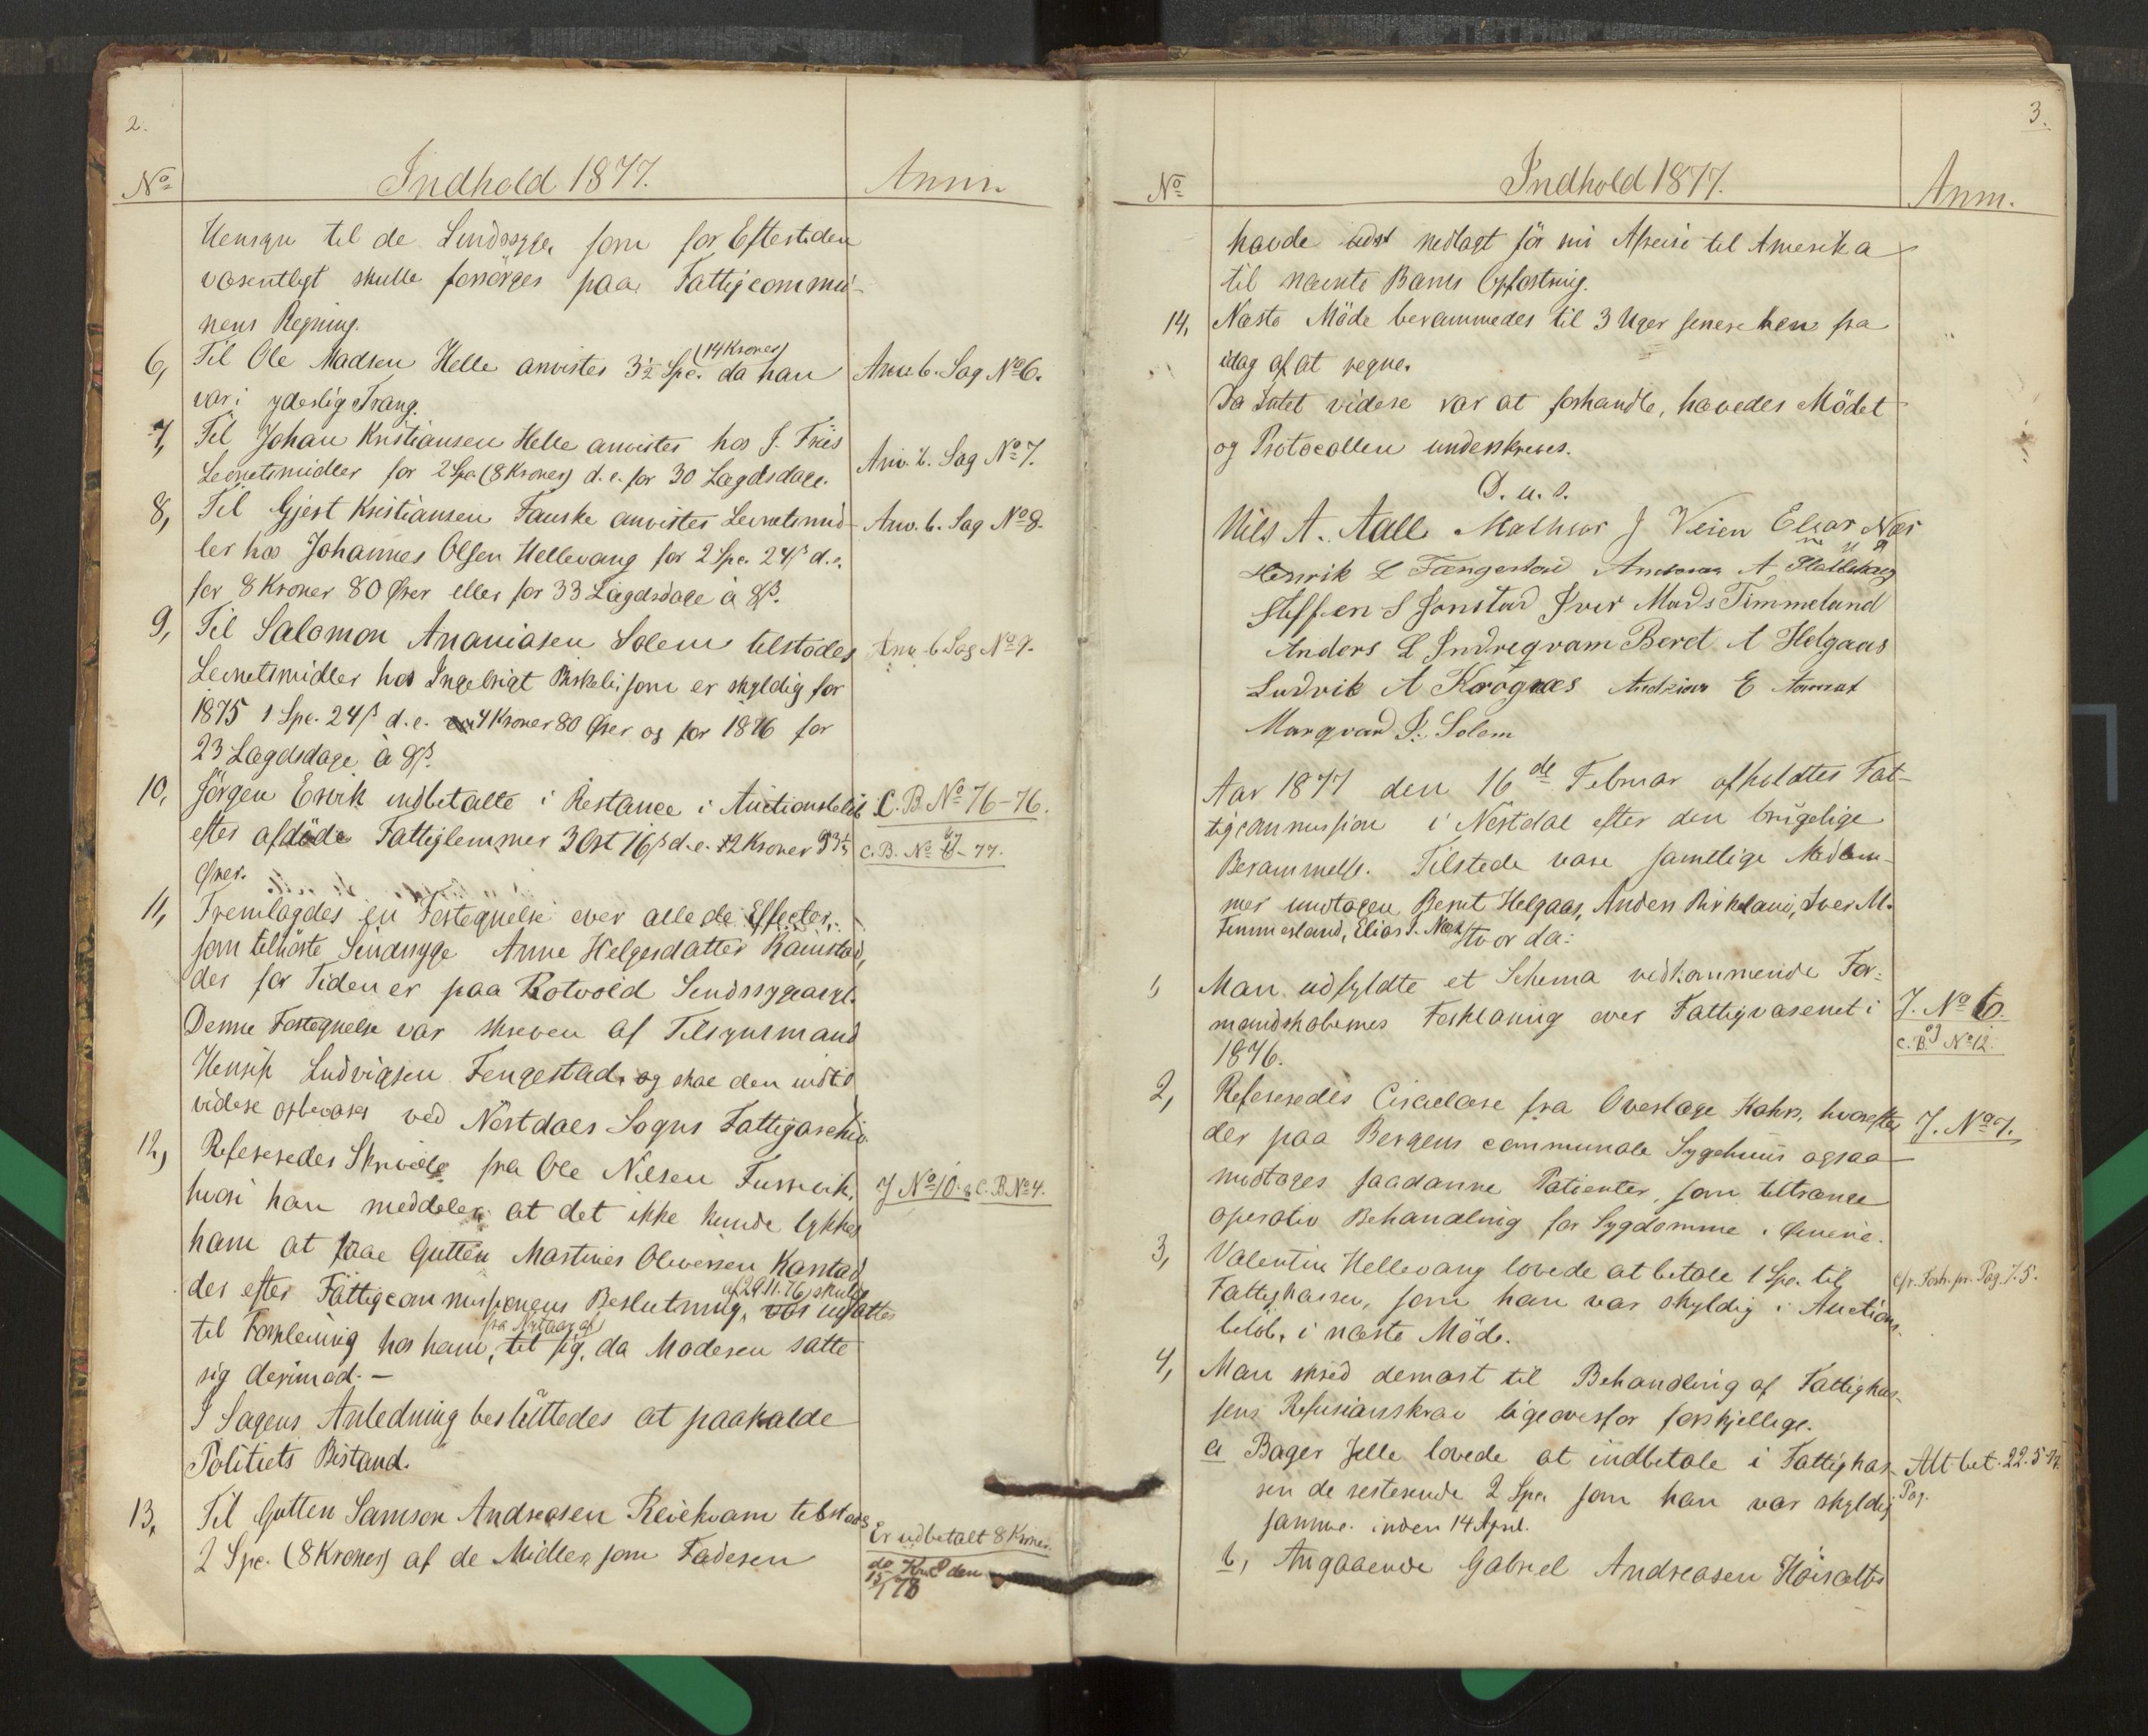 2.
No
Indhold 1877.
Anm.
Hensyn til de Sindssyge, som for Eftertiden
væsentligt skulle forsörges paa Fattigcommu-
nens Regning.
6, Til Ole Madsen Helle anvistes 3½ Spe. (14 Kroner) da han
var i yderlig Trang.
Anv. b. Sag No 6.
7, Til Johan Kristiansen Helle anvistes hos J. Friis
Levnetsmidler for 2 Spe. (8 Kroner) d. e. for 30 Lægdsdage.
Anv. b. Sag No 7.
8, Til Gjert Kristiansen Fauske anvistes Levnetsmid-
ler hos Johannes Olsen Hellevang for 2 Spe. 24 β d. e.
for 8 Kroner 80 Ører eller for 33 Lægdsdage à 8β.
Anv. b. Sag No 8.
9, Til Salomon Ananiasen Solem tilstodes
Levnetsmidler hos Ingebrigt Birkeli, som er skyldig for
1875 1 Spe. 24 β d. e. 4 Kroner 80 Ører og for 1876 for
23 Lægdsdage à 8β.
Anv. b. Sag No 9.
10, Jörgen Ervik indbetalte i Restance i Auctionsbelöb
efter afdöde Fattiglemmer 3 Ort 16 β d. e. 2 Kroner 93⅓
Ører.
C. B. No 76-76.
C. B. No 67-77.
11, Fremlagdes en Fortegnelse over alle de Effecter,
som tilhörte Sindssyge Anne Helgesdatter Ramstad,
der for Tiden er paa Rotvold Sindssygeasyl.
Denne Fortegnelse var skreven af Tilsynsmand
Henrik Ludvigsen Fengestad, og skal den indtil
videre opbevares ved Nördtdals Sogns Fattigarchiv.
12, Refereredes Skrivelse fra Ole Nilsen Furevik,
hvori han meddeler, at det ikke kunde lykkes
ham at faae Gutten Martinus Oliversen Kanstad,
der efter Fattigcommissionens Beslutning, af 29.11.76, skulde
til Forpleining hos ham, fra Nytaar af, til sig, da Moderen satte
sig derimod. —
J No 10. & C. B. No 4.
I Sagens Anledning besluttedes at paakalde
Politiets Bistand.
13, Til Gutten Samson Andreasen Reiekvam tilstodes
2 Spe. (8 Kroner) af de Midler, som Faderen
Er udbetalt 8 Kroner.
do Kr. 8 den
15/5 78
3.
No
Indhold 1877.
Anm.
havde nedlagt för sin Afreise til Amerika
til nævnte Barns Opfostring.
14, Næste Möde berammedes til 3 Uger senere hen fra
idag af at regne.
Da Intet videre var at forhandle, hævedes Mödet
og Protocollen underskreves.
D. u. s.
Nils A. Aall Mathias J Veien Elias Nær
Henrik L Fængestad Andreas A
Steffen S Jonstad Iver Mads Timmeland
Anders L Indregvam Berct A Helgaas
Ludvik A Krögnæs Andreas E
Marqvard J. Solem
Aar 1877 den 16de Februar afholdtes Fat-
tigcommission i Nörtdal efter den brugelige
Berammelse. Tilstede vare samtlige Medlem-
mer undtagen Bernt Helgaas, Anders Birkeland, Iver M.
Timmerland, Elias J. Nær. Hvorda:
1, Man udfyldte et Schema vedkommende For-
mandskabernes Forklaring over Fattigvæsenet i
1876.
J. No 6.
og
C. B. No 12.
2, Refereredes Circulære fra Overlæge Kahrs, hvorefter
der paa Bergens communale Sygehuus ogsaa
modtages saadanne Patienter, som tiltrænge
operativ Behandling for Sygdomme i Øinene.
J. No 7.
3, Valentin Hellevang lovede at betale 1 Spe. til
Fattigkassen, som han var skyldig i Auctions-
belöb, i næste Möde.
cfr. Forh. pr. Pag. 7. 5.
4, Man skred dernæst til Behandling af Fattigkas-
sens Refusionskrav ligeoverfor forskjellige.
a Bager Jelle lovede at indbetale i Fattigkas-
sen de resterende 2 Spe. som han var skyldig
samme inden 14 April.
Alt bet. 22.5.77.
Pag.
b, Angaaende Gabriel Andreasen Höisæter